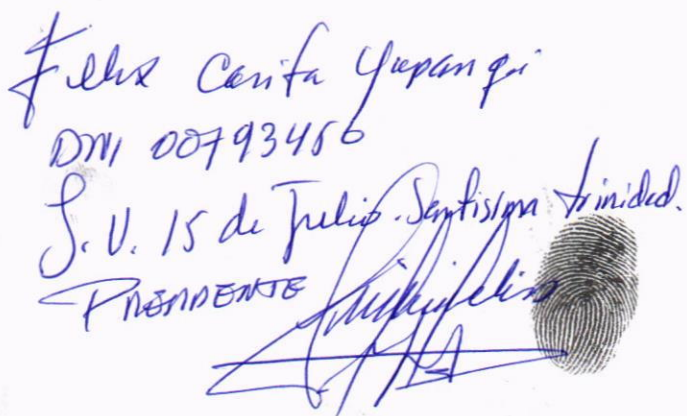 Felix Carifa Yupanqi
DNI 00793456
J.V. 15 de Julio. Santisima trinidad.
PRESIDENTE